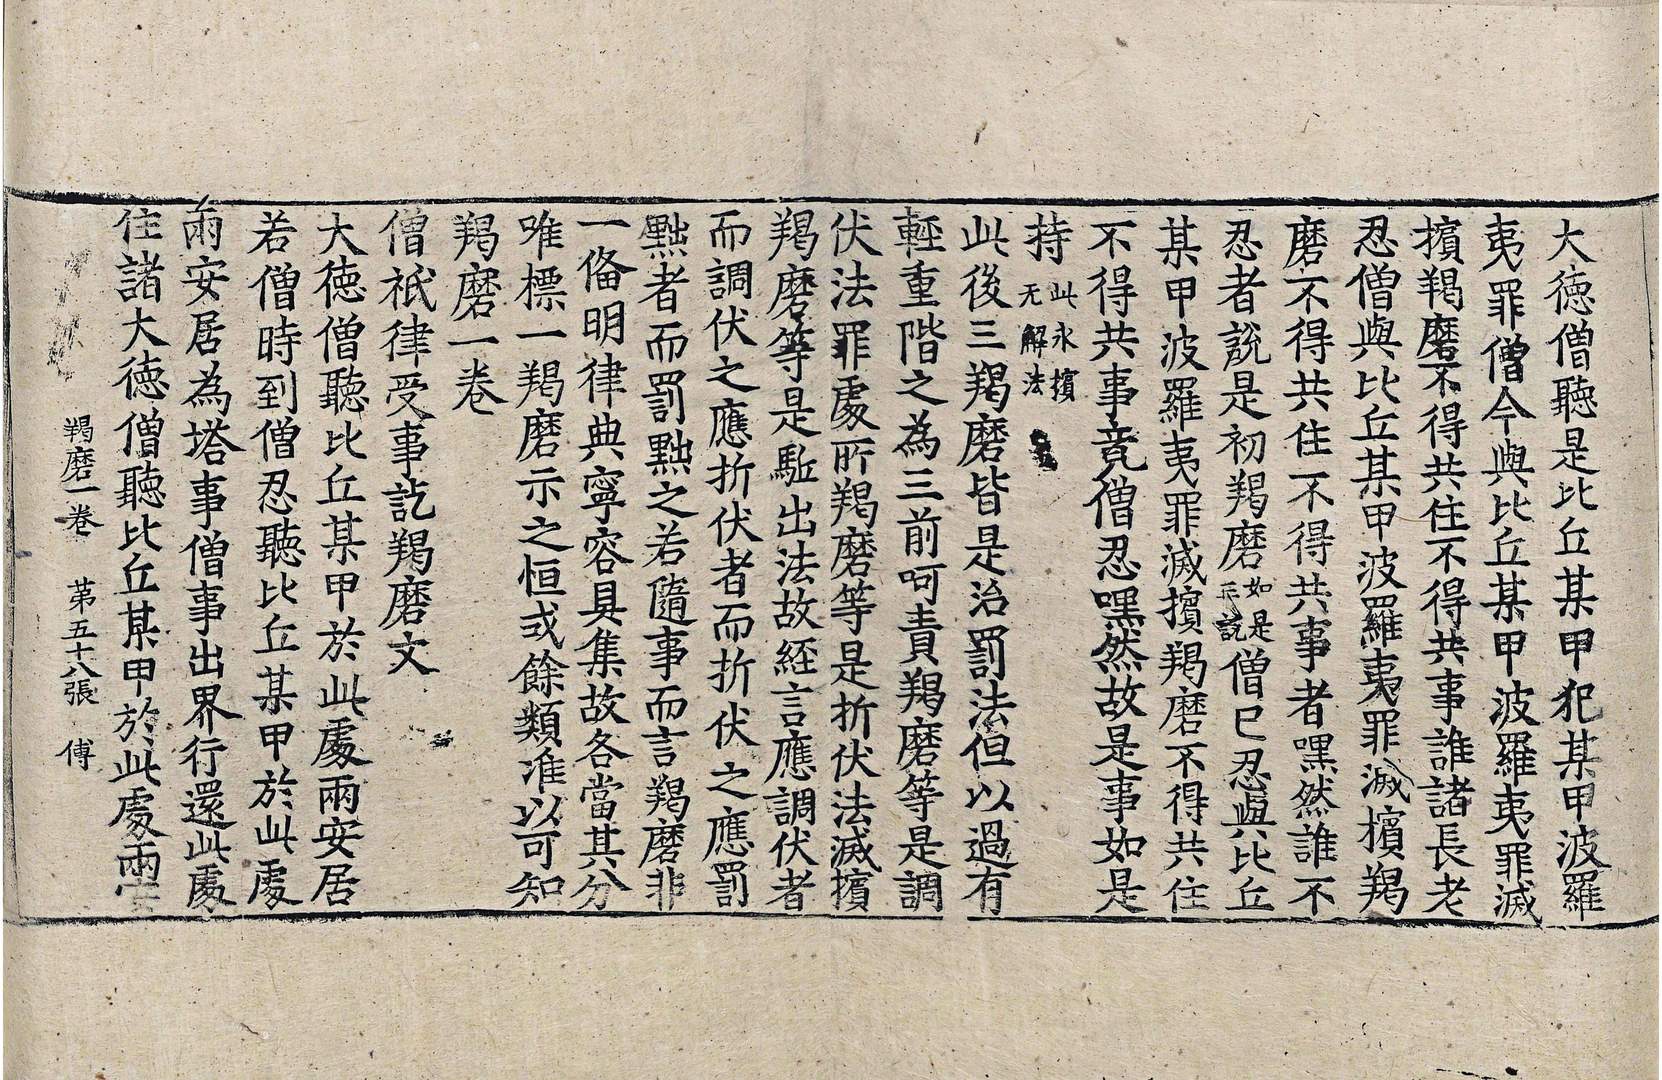 大徳僧聽是比丘某甲犯某甲波羅
夷罪僧今與比丘某甲波羅夷罪滅
擯羯磨不得共住不得共事誰諸長老
忍僧與比丘某甲波羅夷罪滅擯羯
磨不得共住不得共事者嘿然誰不
忍者說是初羯磨如是三說僧已忍與比丘
某甲波羅夷罪滅擯羯磨不得共住
不得共事竟僧忍嘿然故是事如是
持此永擯无解法
此後三羯磨皆是治罰法但以過有
輕重階之為三前呵責羯磨等是調
伏法罪處所羯磨等是折伏法滅擯
羯磨等是駈出法故經言應調伏者
而調伏之應折伏者而折伏之應罰
黜者而罰黜之若隨事而言羯磨非
一俻明律典寧容具集故各當其分
唯標一羯磨示之恒式餘類准以可知
羯磨一卷
僧祇律受事訖羯磨文
大徳僧聽比丘某甲於此處雨安居
若僧時到僧忍聽比丘某甲於此處
雨安居為塔事僧事出界行還此處
住諸大徳僧聽比丘某甲於此處雨安
羯磨一卷 第五十八張 傅